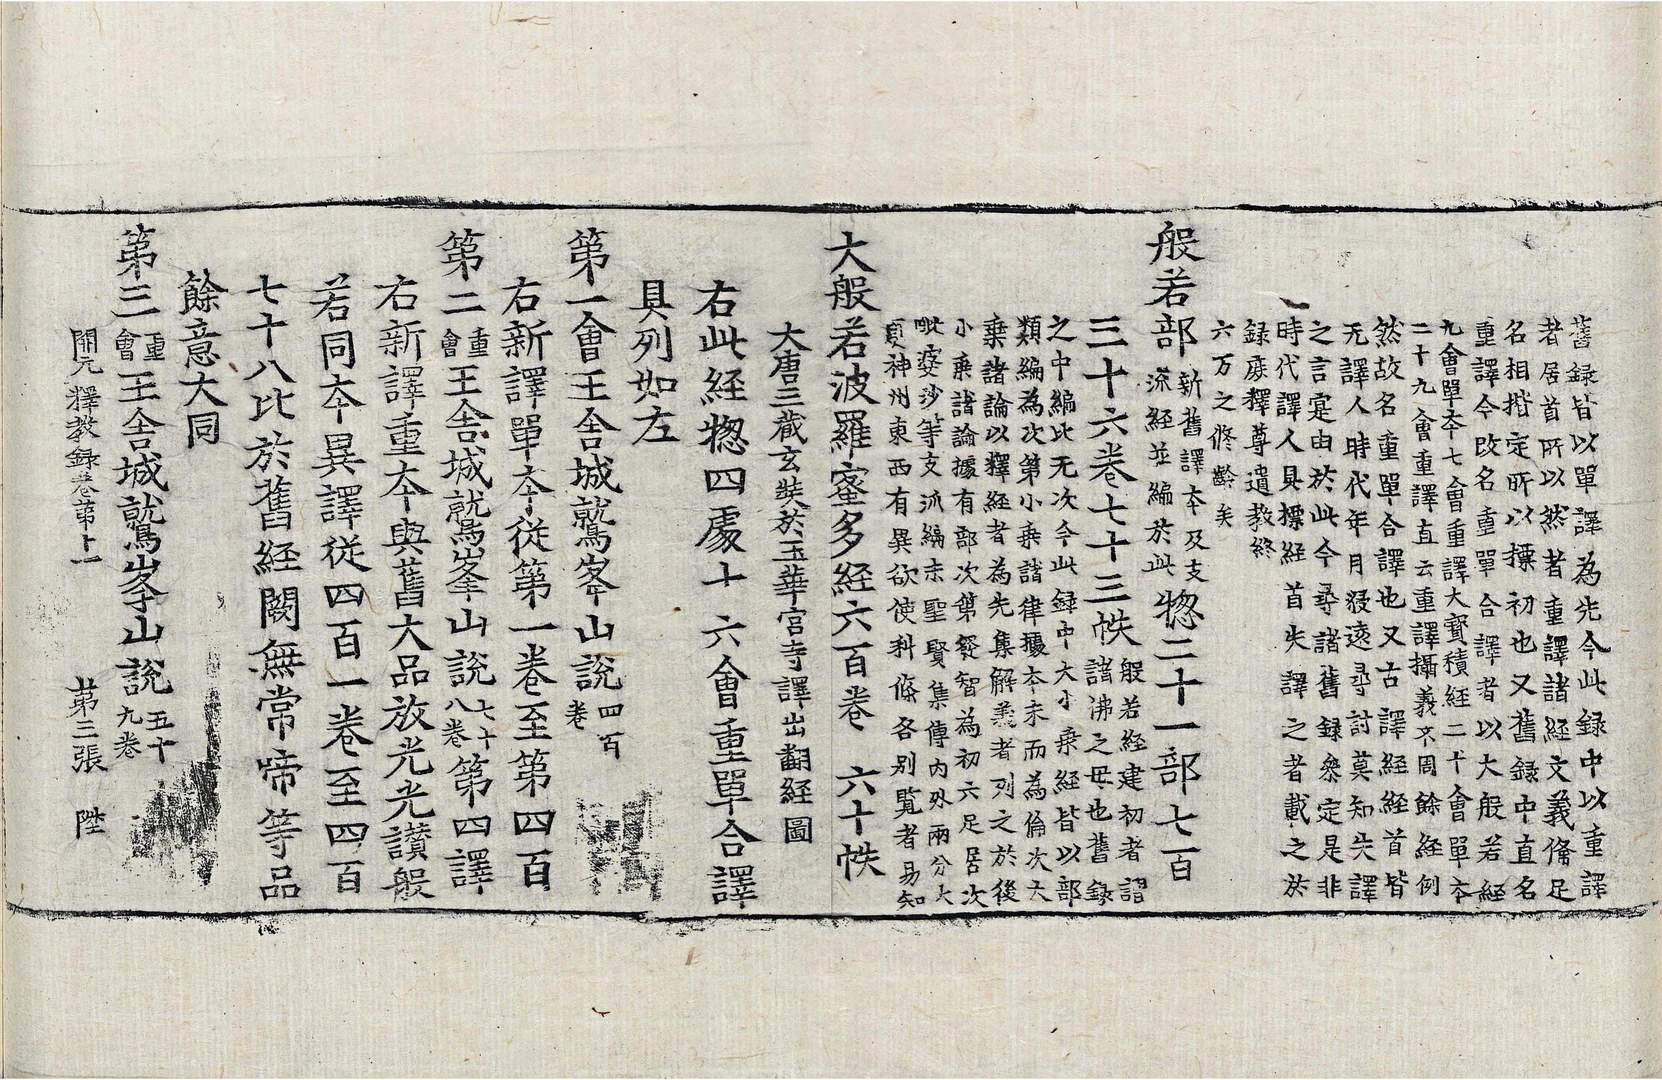 舊録皆以單譯為先今此録中以重譯
者居首所以然者重譯諸経文義俻足
名相揩定所以摽初也又舊録中直名
重譯今改名重單合譯者以大般若経
九會單夲七會重譯大寳積経二十會單夲
二十九會重譯直云重譯攝義不周餘経例
然故名重單合譯也又古譯経経首皆
无譯人時代年月浸遠尋討莫知失譯
之言寔由於此今尋諸舊録叅定是非
時代譯人具摽経首失譯之者載之於
録庶釋尊遺教終
六万之修齡矣
般若部新舊譯夲及支派経並編於此惣二十一部七百
三十六卷七十三帙般若経建初者謂諸佛之母也舊録
之中編比无次今此録中大小乗経皆以部
類編為次第小乗諸律據夲末而為倫次大
乗諸論以釋経者為先集解義者列之於後
小乗諸論據有部次第發智為初六足居次
毗婆沙等支派編末聖賢集傳内外兩分大
夏神州東西有異欲使科條各別覧者易知
大般若波羅蜜多経六百卷 六十帙
大唐三藏玄奘於玉華宮寺譯出翻経圖
右此経惣四處十六會重單合譯
具列如左
第一會王舎城鷲峯山説四百卷
右新譯單夲從第一卷至第四百
第二重會王舎城鷲峯山説七十八卷第四譯
右新譯重夲與舊大品放光光讃般
若同夲異譯從四百一卷至四百
七十八比於舊経闕無常啼等品
餘意大同
第三重會王舎城鷲峯山説五十九卷
開元釋教録卷第十一 第三張 陛